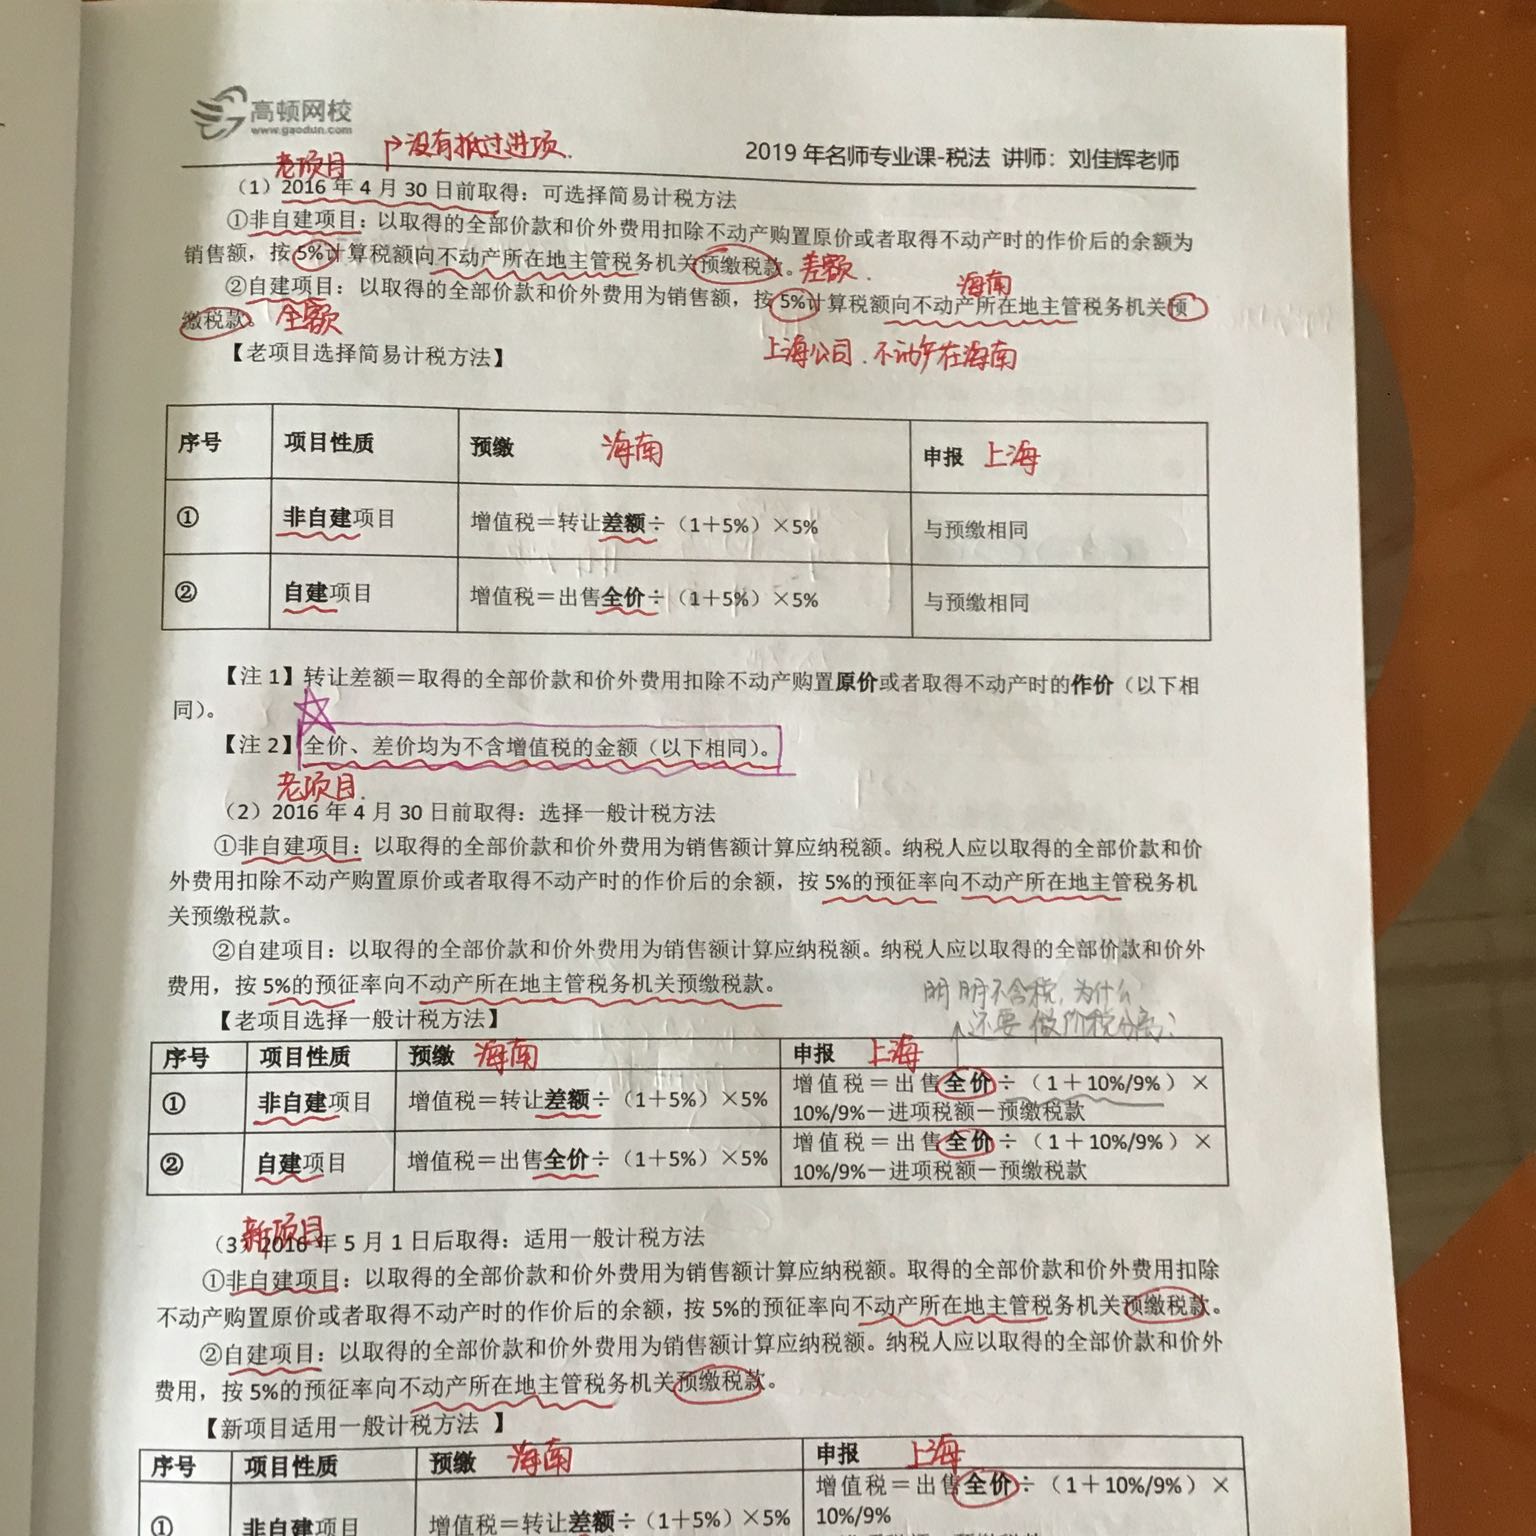 高顿网校
www.gaodun.com
没有抵过进项.
2019 年名师专业课-税法 讲师：刘佳辉老师
老项目
（1）2016 年 4 月 30 日前取得：可选择简易计税方法
①非自建项目：以取得的全部价款和价外费用扣除不动产购置原价或者取得不动产时的作价后的余额为
销售额，按 5%计算税额向不动产所在地主管税务机关预缴税款。差额.
海南
②自建项目：以取得的全部价款和价外费用为销售额，按 5%计算税额向不动产所在地主管税务机关预
缴税款。全额
【老项目选择简易计税方法】
上海公司.不动产在海南
序号 项目性质 预缴 海南 申报 上海
① 非自建项目 增值税＝转让差额÷（1＋5%）×5% 与预缴相同
② 自建项目 增值税＝出售全价÷（1＋5%）×5% 与预缴相同
【注 1】转让差额＝取得的全部价款和价外费用扣除不动产购置原价或者取得不动产时的作价（以下相
同）。
【注 2】全价、差价均为不含增值税的金额（以下相同）。
老项目.
（2）2016 年 4 月 30 日前取得：选择一般计税方法
①非自建项目：以取得的全部价款和价外费用为销售额计算应纳税额。纳税人应以取得的全部价款和价
外费用扣除不动产购置原价或者取得不动产时的作价后的余额，按 5%的预征率向不动产所在地主管税务机
关预缴税款。
②自建项目：以取得的全部价款和价外费用为销售额计算应纳税额。纳税人应以取得的全部价款和价外
费用，按 5%的预征率向不动产所在地主管税务机关预缴税款。
明明不含税,为什么
还要做价税分离;
【老项目选择一般计税方法】
序号 项目性质 预缴 海南 申报 上海
① 非自建项目 增值税＝转让差额÷（1＋5%）×5% 增值税＝出售全价÷（1＋10%/9%）×
10%/9%－进项税额－预缴税款
② 自建项目 增值税＝出售全价÷（1＋5%）×5% 增值税＝出售全价÷（1＋10%/9%）×
10%/9%－进项税额－预缴税款
新项目
（3）2016 年 5 月 1 日后取得：适用一般计税方法
①非自建项目：以取得的全部价款和价外费用为销售额计算应纳税额。取得的全部价款和价外费用扣除
不动产购置原价或者取得不动产时的作价后的余额，按 5%的预征率向不动产所在地主管税务机关预缴税款。
②自建项目：以取得的全部价款和价外费用为销售额计算应纳税额。纳税人应以取得的全部价款和价外
费用，按 5%的预征率向不动产所在地主管税务机关预缴税款。
【新项目适用一般计税方法 】
序号 项目性质 预缴 海南 申报 上海
① 非自建项目 增值税＝转让差额÷（1＋5%）×5% 增值税＝出售全价÷（1＋10%/9%）×
10%/9%